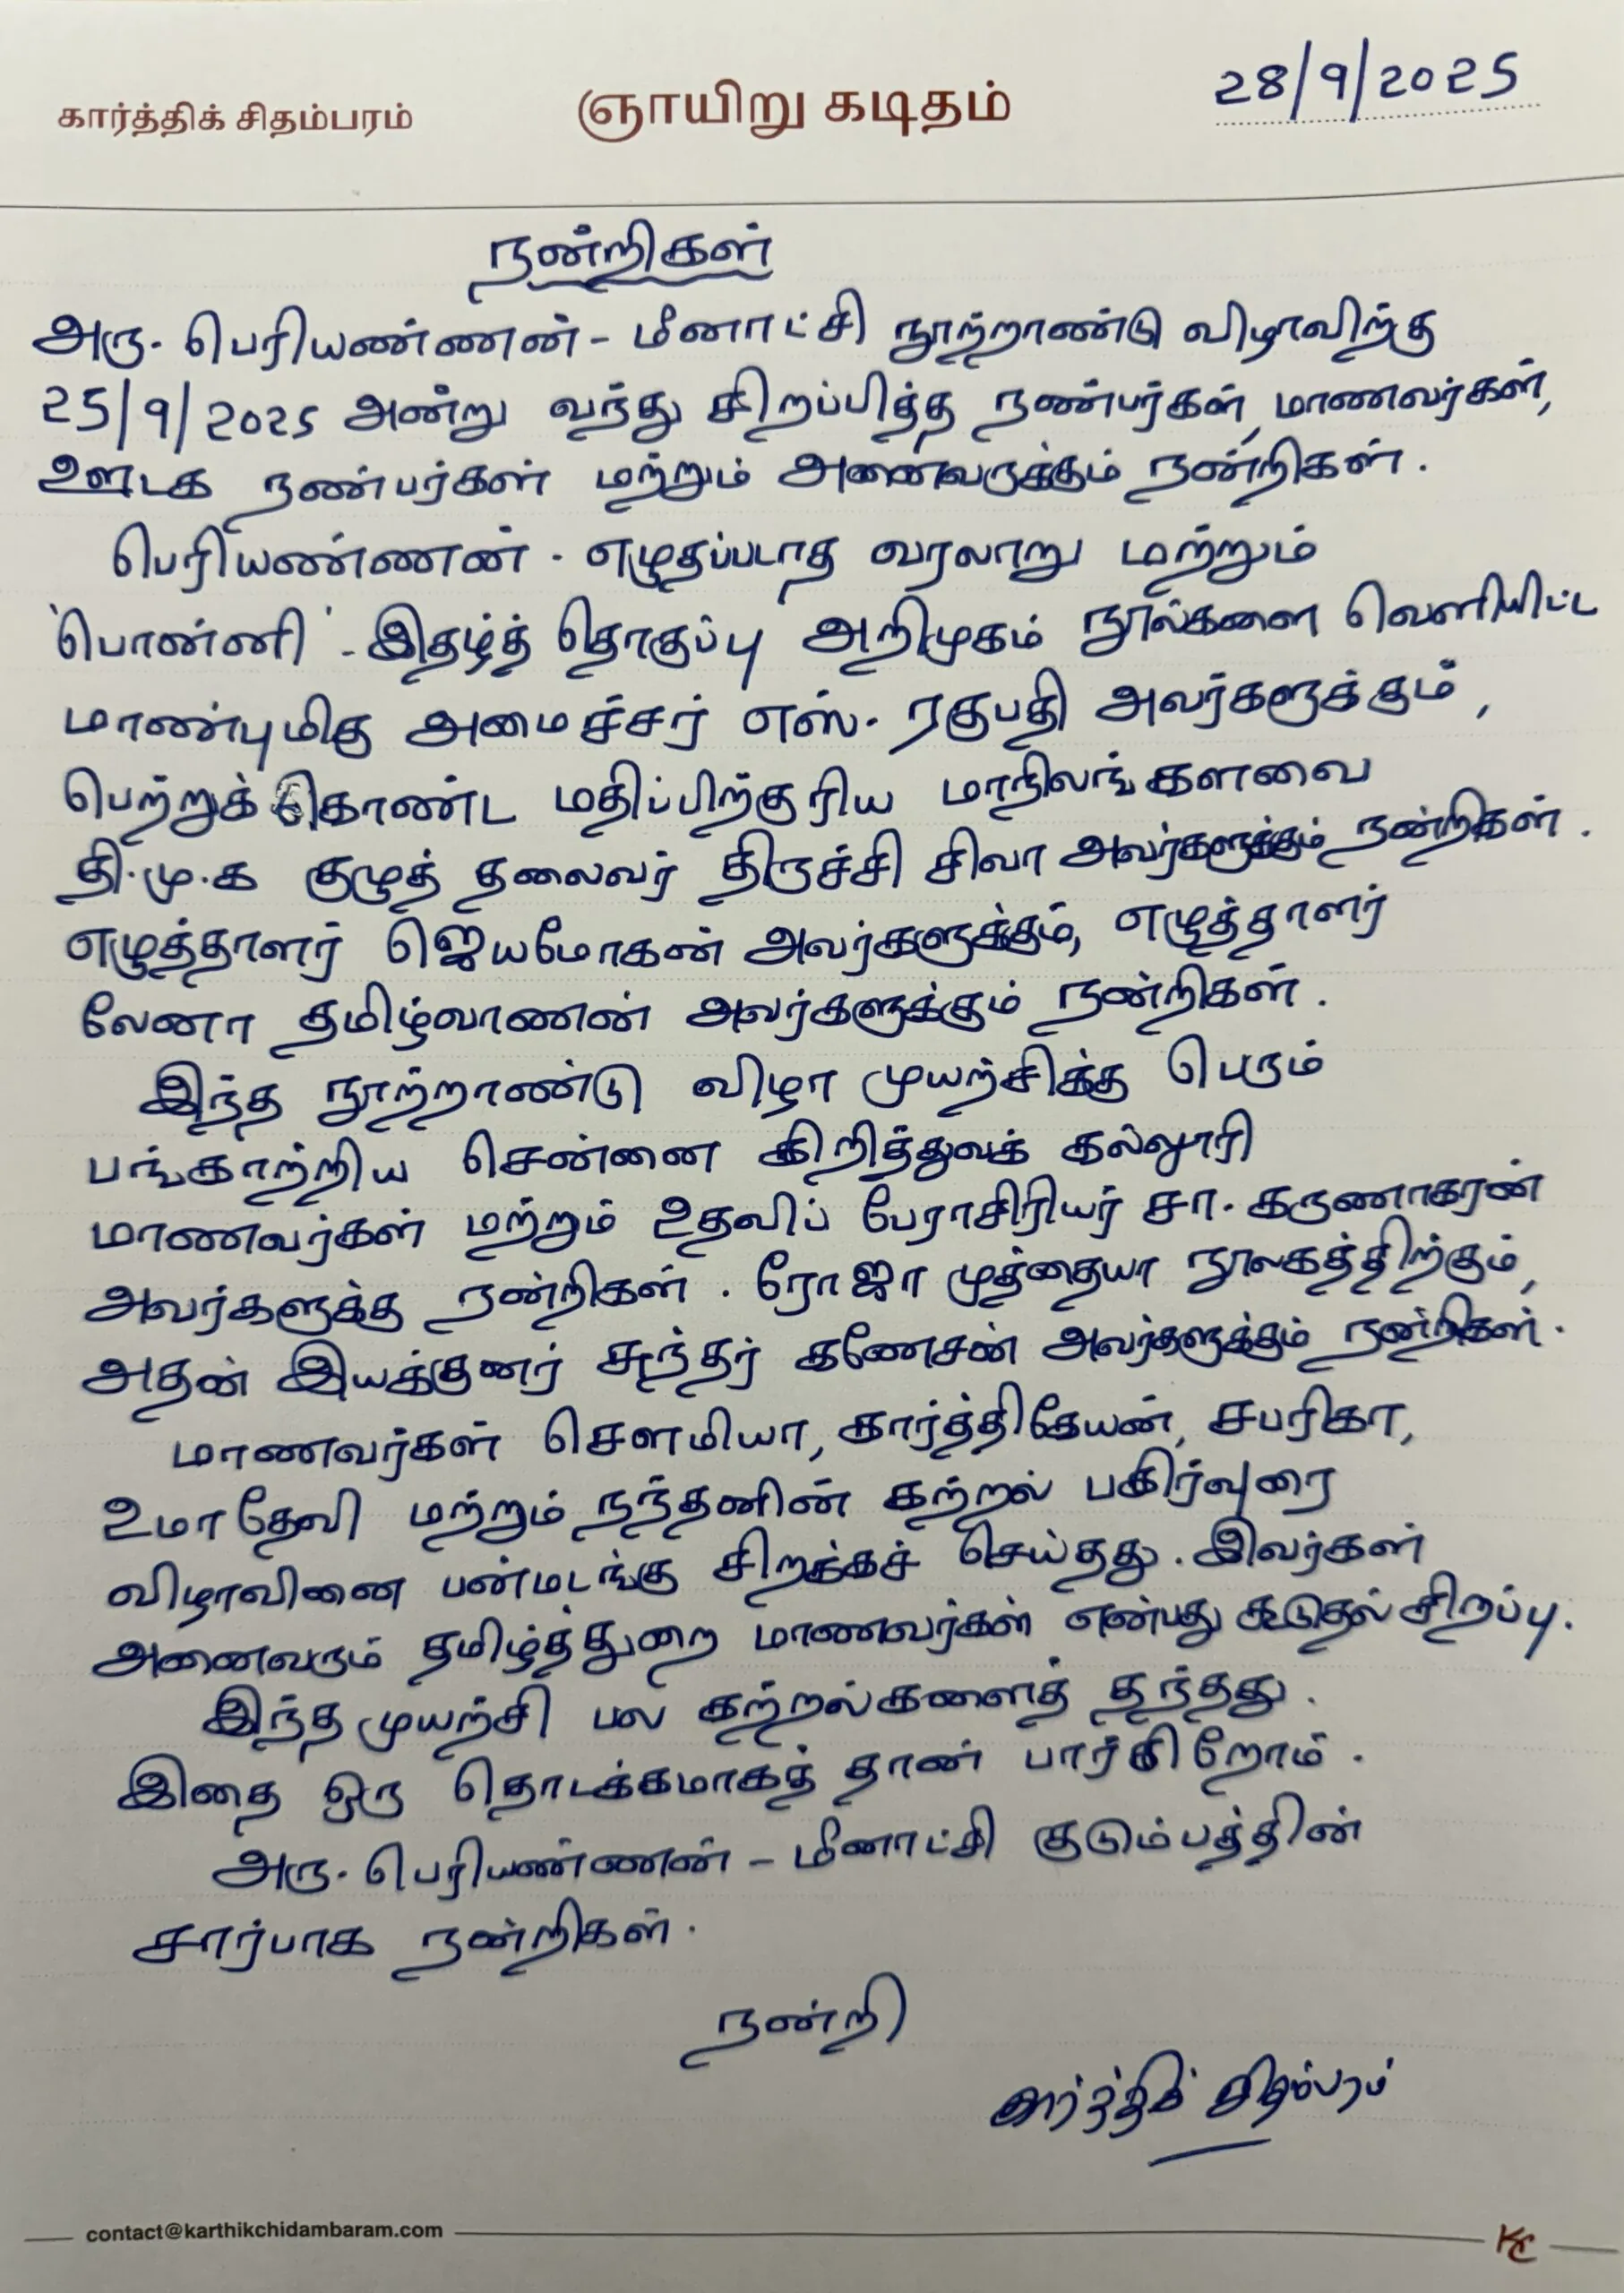 கார்த்திக் சிதம்பரம்
ஞாயிறு கடிதம்
28/9/2025
நன்றிகள்
அரு. பெரியண்ணன் - மீனாட்சி நூற்றாண்டு விழாவிற்கு
25/9/2025 அன்று வந்து சிறப்பித்த நண்பர்கள், மாணவர்கள்,
ஊடக நண்பர்கள் மற்றும் அனைவருக்கும் நன்றிகள்.
பெரியண்ணன் - எழுதப்படாத வரலாறு மற்றும்
'பொன்னி' - இதழ்த் தொகுப்பு அறிமுகம் நூல்களை வெளியிட்ட
மாண்புமிகு அமைச்சர் எஸ். ரகுபதி அவர்களுக்கும்,
பெற்றுக் கொண்ட மதிப்பிற்குரிய மாநிலங்களவை
தி.மு.க குழுத் தலைவர் திருச்சி சிவா அவர்களுக்கும் நன்றிகள்.
எழுத்தாளர் ஜெயமோகன் அவர்களுக்கும், எழுத்தாளர்
லேனா தமிழ்வாணன் அவர்களுக்கும் நன்றிகள்.
இந்த நூற்றாண்டு விழா முயற்சிக்கு பெரும்
பங்காற்றிய சென்னை கிறித்துவக் கல்லூரி
மாணவர்கள் மற்றும் உதவிப் பேராசிரியர் சா. கருணாகரன்
அவர்களுக்கு நன்றிகள். ரோஜா முத்தையா நூலகத்திற்கும்,
அதன் இயக்குனர் சுந்தர் கணேசன் அவர்களுக்கும் நன்றிகள்.
மாணவர்கள் சௌமியா, கார்த்திகேயன், சபரிகா,
உமாதேவி மற்றும் நந்தனின் கற்றல் பகிர்வுரை
விழாவினை பன்மடங்கு சிறக்கச் செய்தது. இவர்கள்
அனைவரும் தமிழ்த்துறை மாணவர்கள் என்பது கூடுதல் சிறப்பு.
இந்த முயற்சி பல கற்றல்களைத் தந்தது.
இதை ஒரு தொடக்கமாகத் தான் பார்கிறோம்.
அரு. பெரியண்ணன் - மீனாட்சி குடும்பத்தின்
சார்பாக நன்றிகள்.
நன்றி
கார்த்திக் சிதம்பரம்
contact@karthikchidambaram.com
KC